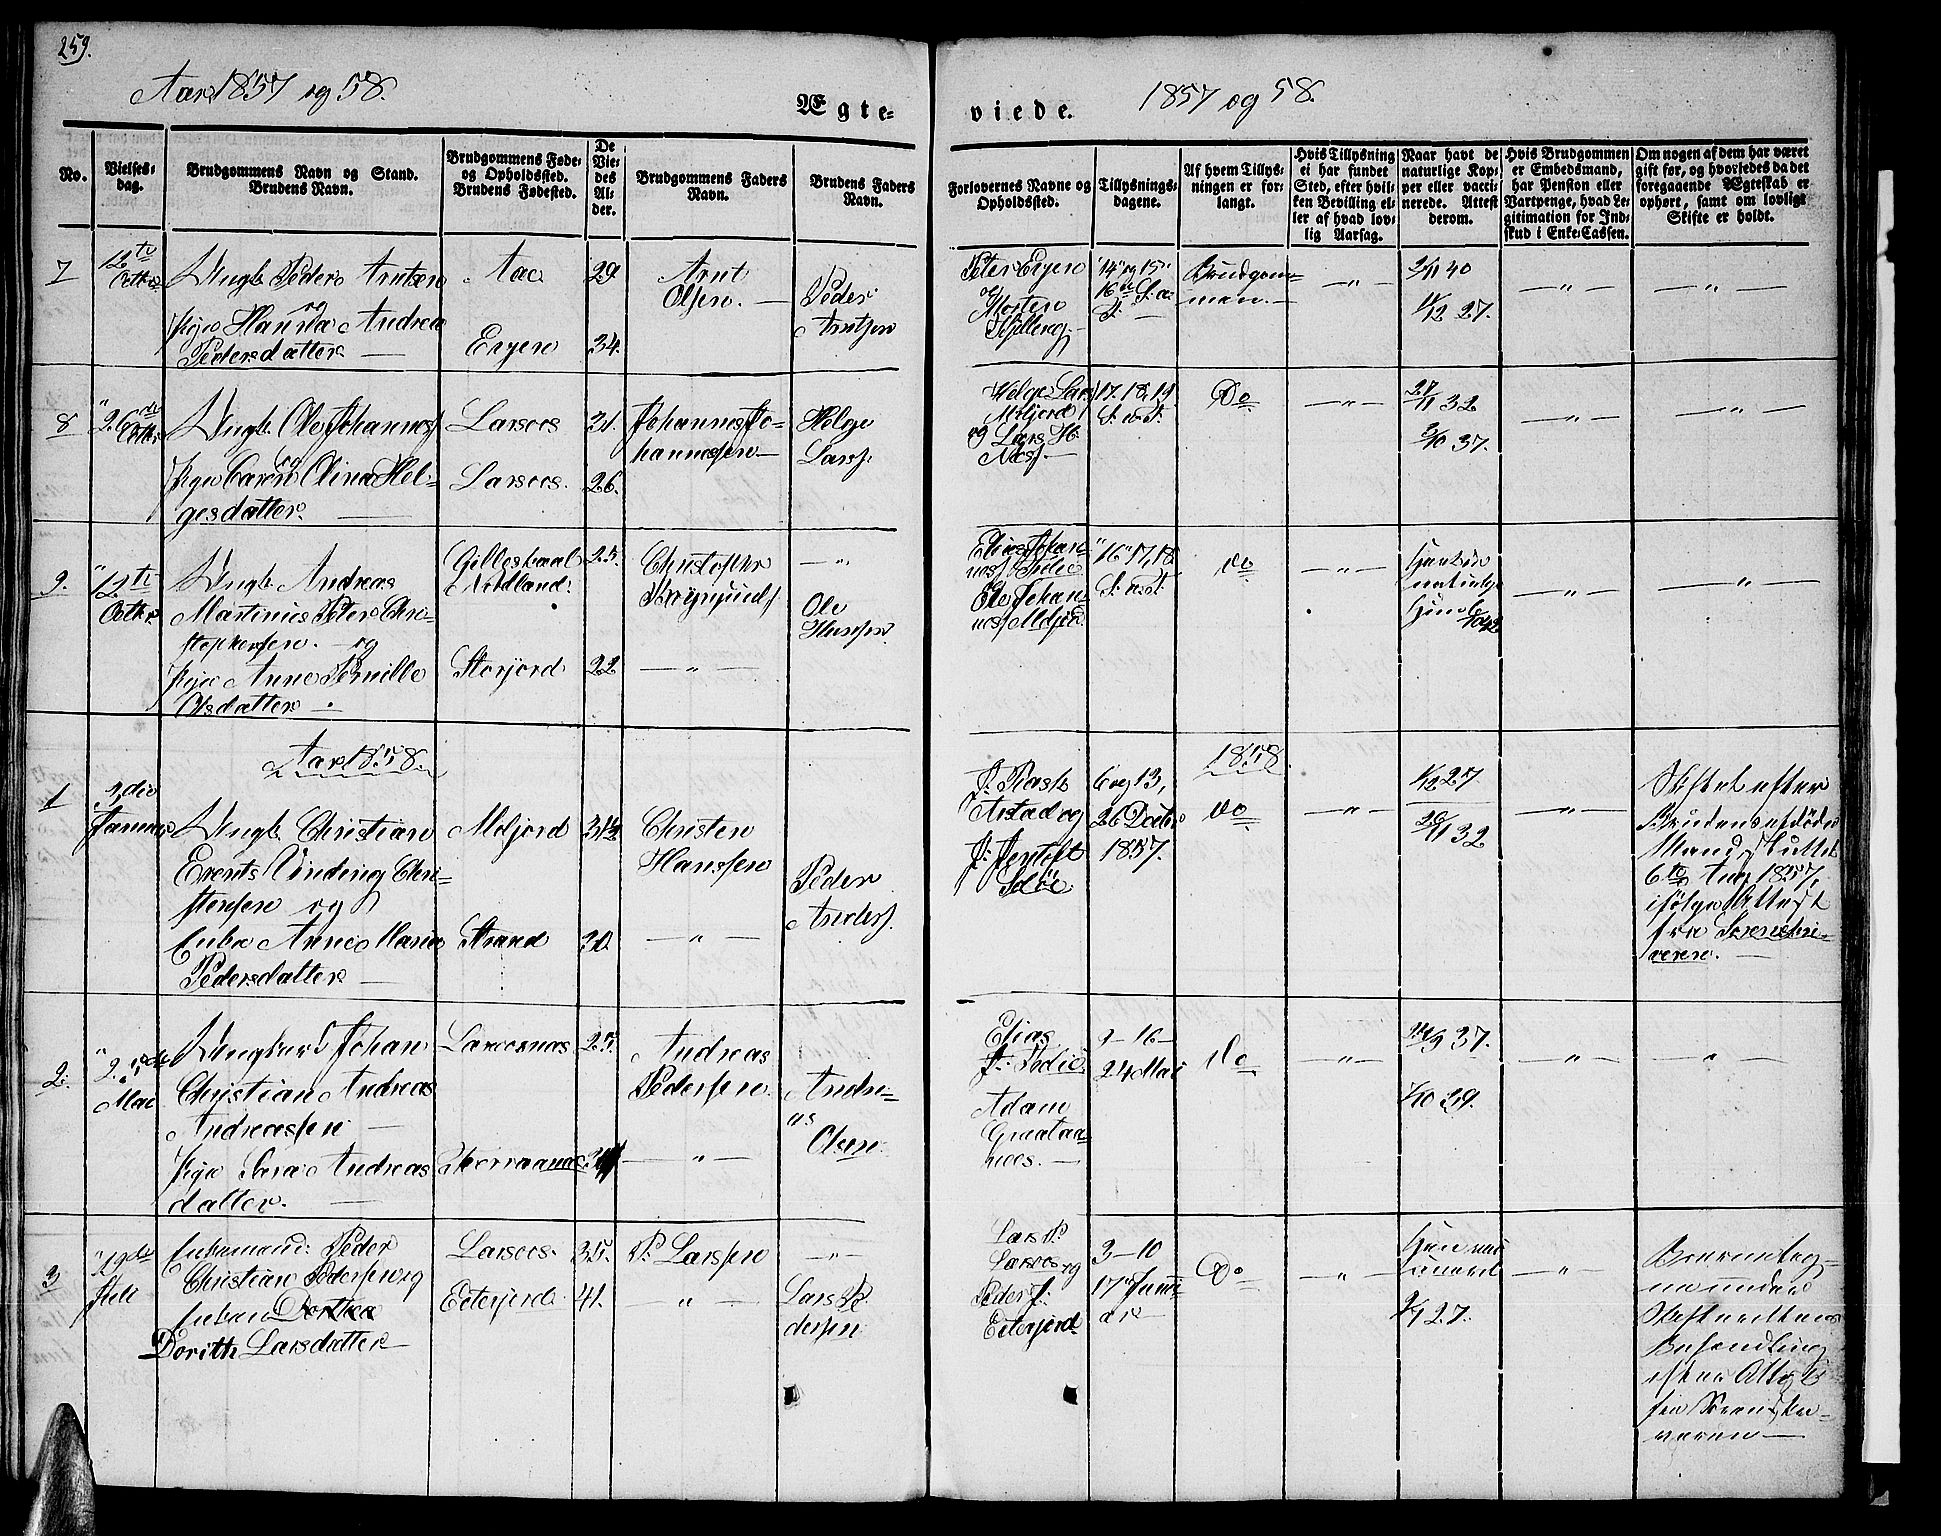 259.
Aar 1857 og 58.
Ægte-
viede.
1857 og 58.
No.
Vielses-
dag.
Brudgommens Navn og Stand.
Brudens Navn.
Brudgommens Føde-
og Opholdssted.
Brudens Fødested.
De
Vie-
des
Al-
der.
Brudgommens Faders
Navn.
Brudens Faders
Navn.
Forlovernes Navne og
Opholdssted.
Tillysnings-
dagene.
Af hvem Tillys-
ningen er for-
langt.
Hvis Tillysning
ei har fundet
Sted, efter hvil-
ken Bevilling el-
ler af hvad lov-
lig Aarsag.
Naar havt de
naturlige Kop-
per eller vacci-
nerede. Attest
derom.
Hvis Brudgommen
er Embedsmand,
har Pension eller
Vartpenge, hvad Le-
gitimation for Ind-
skud i Enke-Cassen.
Om nogen af dem har været
gift før, og hvorledes da det
foregaaende Ægteskab er
ophørt, samt om lovligt
Skifte er holdt.
7
12te
Octbr
Ungk. Peder Arntsen
og
Pige Hanna Andrea
Pedersdatter
Aae
Engen
29
34.
Arnt
Olsen.
Peder
Arntsen
Peter Engen
og
Morten
14 og 15.
16de S. a.
T.
Brudgom-
men.
2/11 40
11/12 27.
8
26de
Octbr
Ungk. Ole Johannes
og
Pige Caren Olina Hel-
gesdatter.
Larsoos
Larsoos.
31.
26.
Johannes Jo-
hannessen
Helge
Lars.
Helge Lars
Meljord
og Lars H.
Næs
17. 18, 19
S. a. T.
Do
27/11 32
3/10 37.
9.
12te
Octbr
Ungk. Andreas
Martinus Peter Chri-
stophersen. og
Pige Anne Pernille
Olsdatter
Gilleskaal
Nordland.
Storjord
25.
22
Christopher
Ole
Hansen.
Elias Johan-
nes
Ole Johan-
nes Meljord
16 17, 18
S. a. T.
Do
Aar 1858.
1858.
1
3die
Januar
Ungk. Christian
Erents Vinding Chri-
stensen og
Enke Anne Maria
Pedersdatter
Meljord
Strand
31½
30.
Christen
Hanssen
Peder
Anders.
J. Rask
Arstad og
J. Jentoft
6 og 13,
26 Decbr
1857.
Do
1/12 27.
20/11 32
Skiftet efter
Brudens afdøde
Mand sluttet
6te Aug 1857,
ifølge Attest
fra Sorenskri-
veren.
2.
25de
Mai
Ungkarl Johan
Christian Andreas
Andreassen
Pige Sara Andreas
datter.
Larsosnæs
25.
Andreas
Pedersen
Andre-
as
Olsen
Elias
Adam
9 - 16 -
24 Mai
Do
37.
1/10 39.
3
19de
Juli
Enkemand: Peder
Christian Pedersen og
Enken Dorthea
Dorith Larsdatter
Larsoos.
Eiterjord.
35.
41.
P. Larssen
Lars P.
dersen
Lars P.
Larsoos og
Peder J.
Eiterjord
3 - 10
17
Do
2/7 27.
Skifterettens
Behandling
efter Attest
fra Sorenskri-
veren